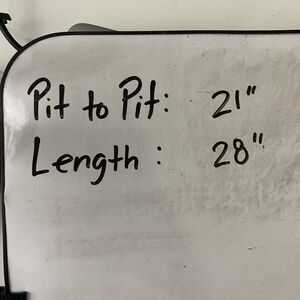 Pit to Pit: 21"
Length: 28"